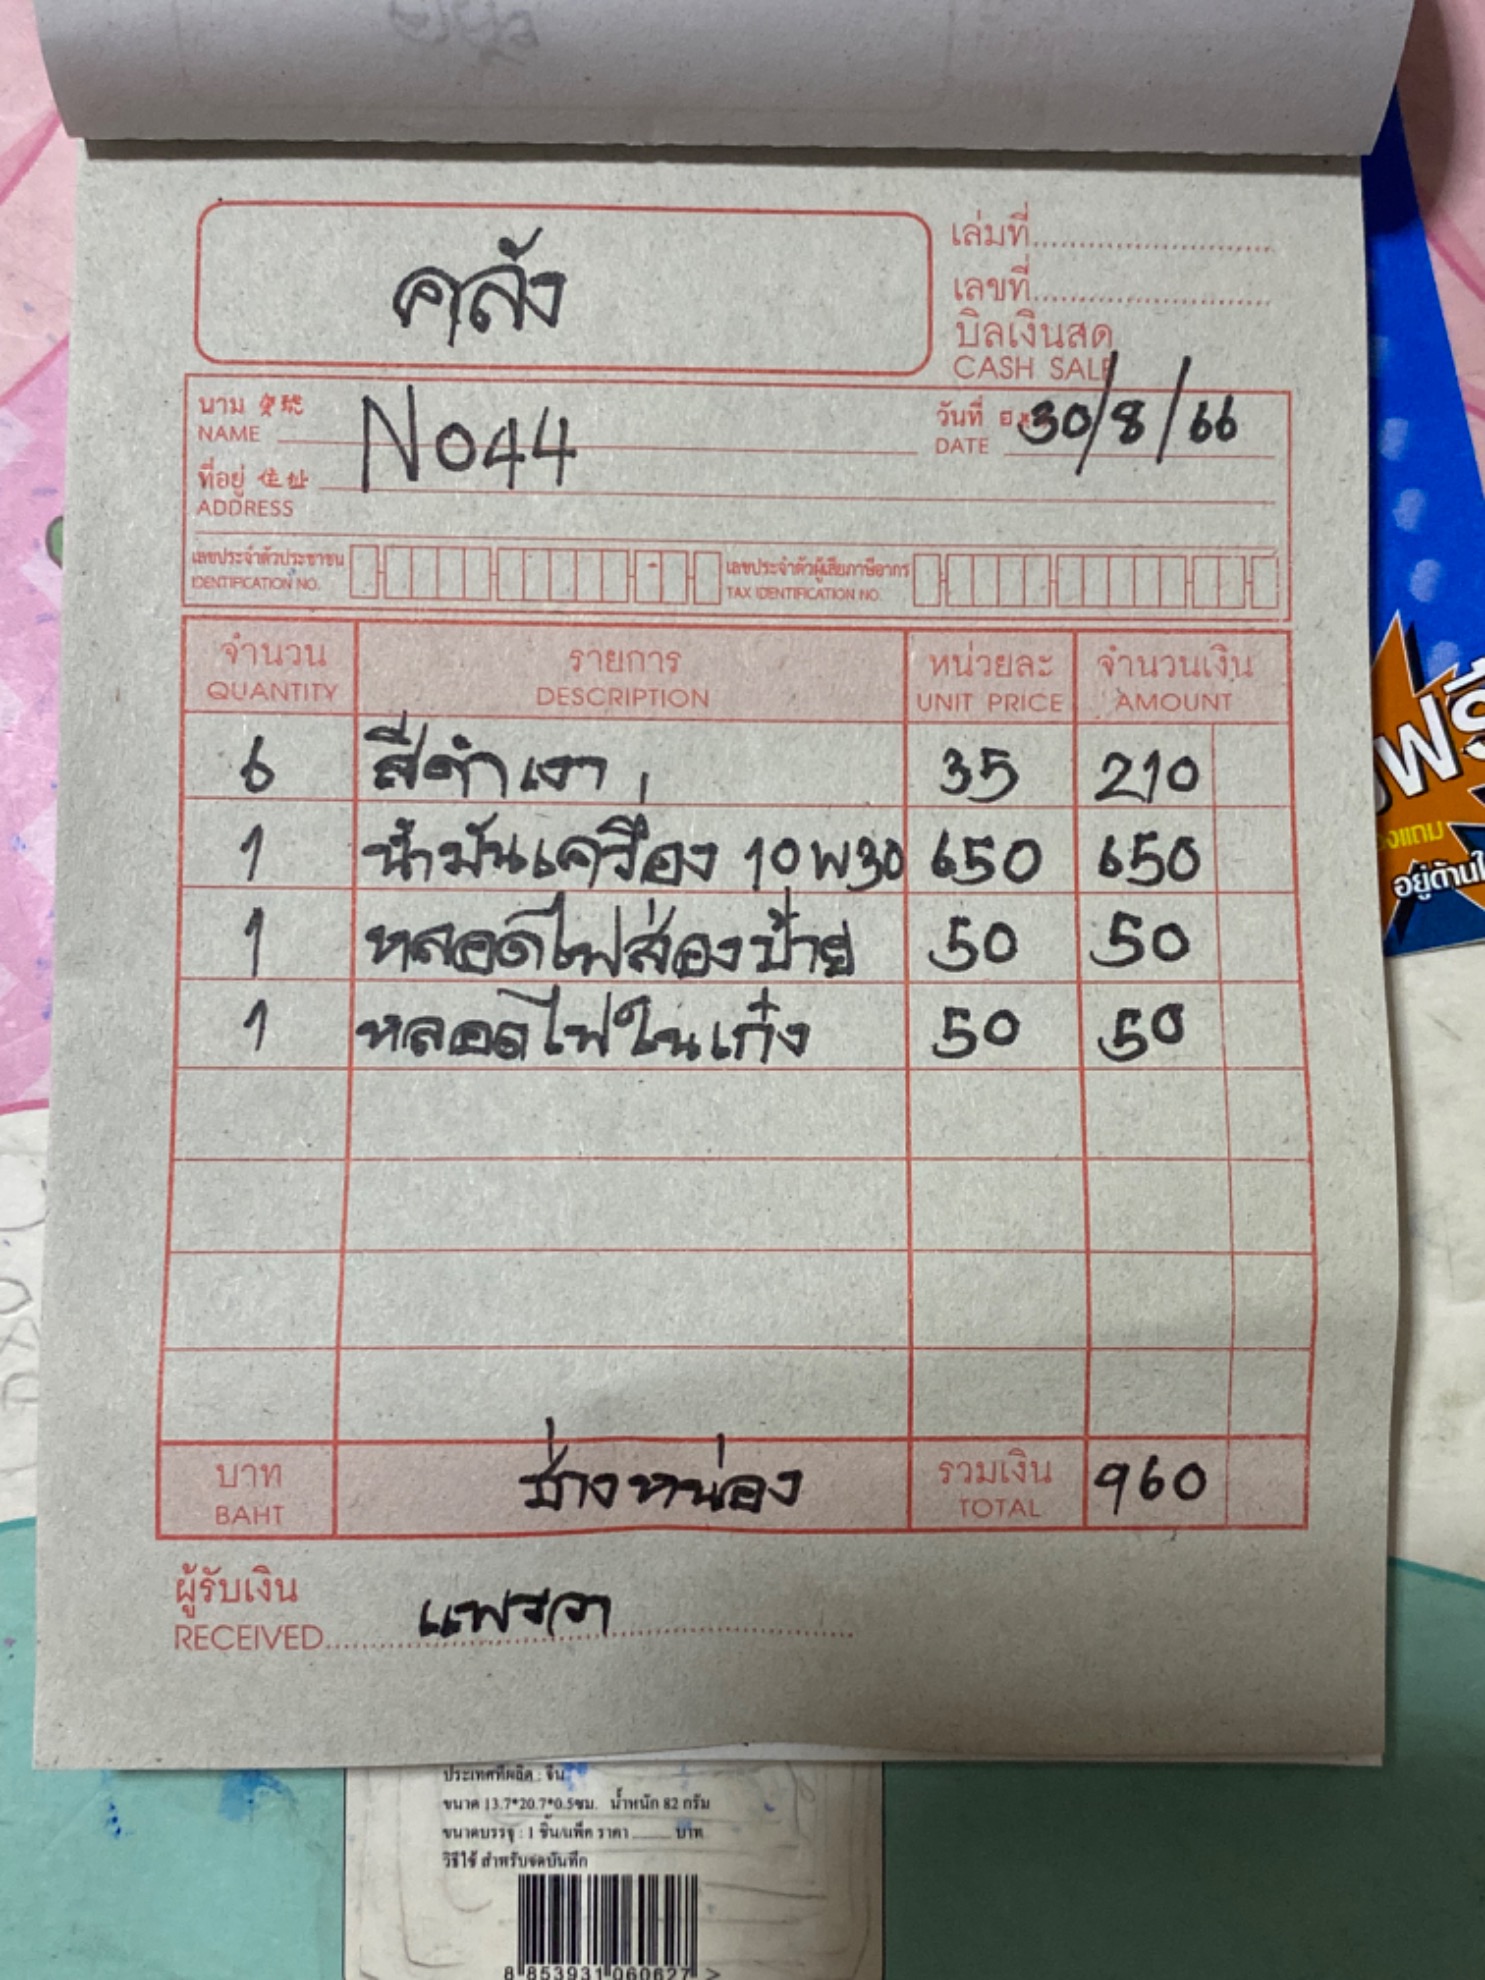 คลัง
เล่มที่
เลขที่
บิลเงินสด
CASH SALE
นาม
NAME
No44
วันที่ 30/8/66
DATE
ที่อยู่ 住址
ADDRESS
เลขประจำตัวประชาชน
IDENTIFICATION NO.
เลขประจำตัวผู้เสียภาษีอากร
TAX IDENTIFICATION NO.
จำนวน รายการ หน่วยละ จำนวนเงิน
QUANTITY DESCRIPTION UNIT PRICE AMOUNT
6 สีดำเงา 35 210
1 น้ำมันเครื่อง 10W30 650 650
1 หลอดไฟส่องป้าย 50 50
1 หลอดไฟในเก๋ง 50 50
บาท ช่างหน่อง รวมเงิน 960
BAHT TOTAL
ผู้รับเงิน
RECEIVED แพรวา
ฟรี
องแถม
อยู่ด้านใ
ประเทศที่ผลิต : จีน
ขนาด 13.7*20.7*0.5ซม. น้ำหนัก 82 กรัม
ขนาดบรรจุ : 1 ชิ้น/แพ็ค ราคา ........ บาท
วิธีใช้ สำหรับจดบันทึก
8 853931 060627 >